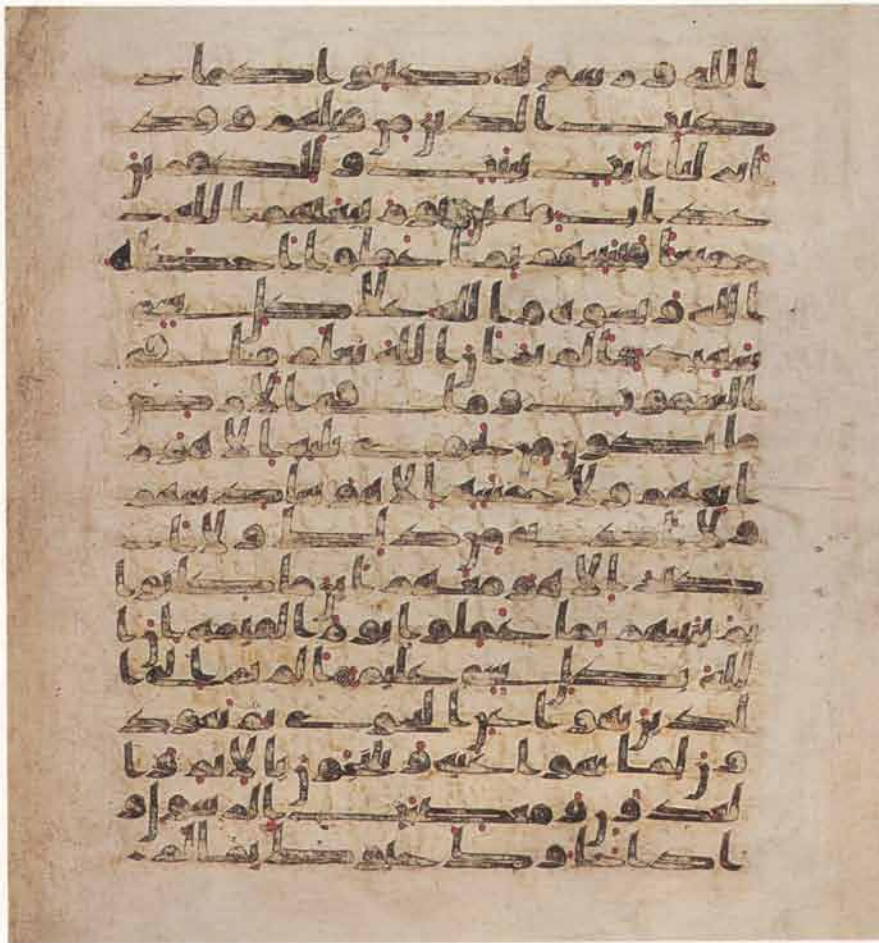 الله ورسوله كبتوا كما
كبت الذين من قبلهم وقد
انزلنا ايت بينت وللكفرين
عذاب مهين يوم يبعثهم الله
جميعا فينبئهم بما عملوا احصيه
الله ونسوه والله على كل شى
شهيد الم تر ان الله يعلم ما فى
السموت وما فى الارض
ما يكون من نجوى ثلثة الا هو ر
ابعهم ولا خمسة الا هو سادسهم
ولا ادنى من ذلك ولا ا
كثر الا هو معهم اين ما كانوا ثم
ينبئهم بما عملوا يوم القيمة ان ا
لله بكل شى عليم الم تر الى ا
لذين نهوا عن النجوى ثم يعود
ون لما نهوا عنه ويتنجون بالاثم وا
لعدون ومعصيت الرسول و
اذا جاوك حيوك بما لم